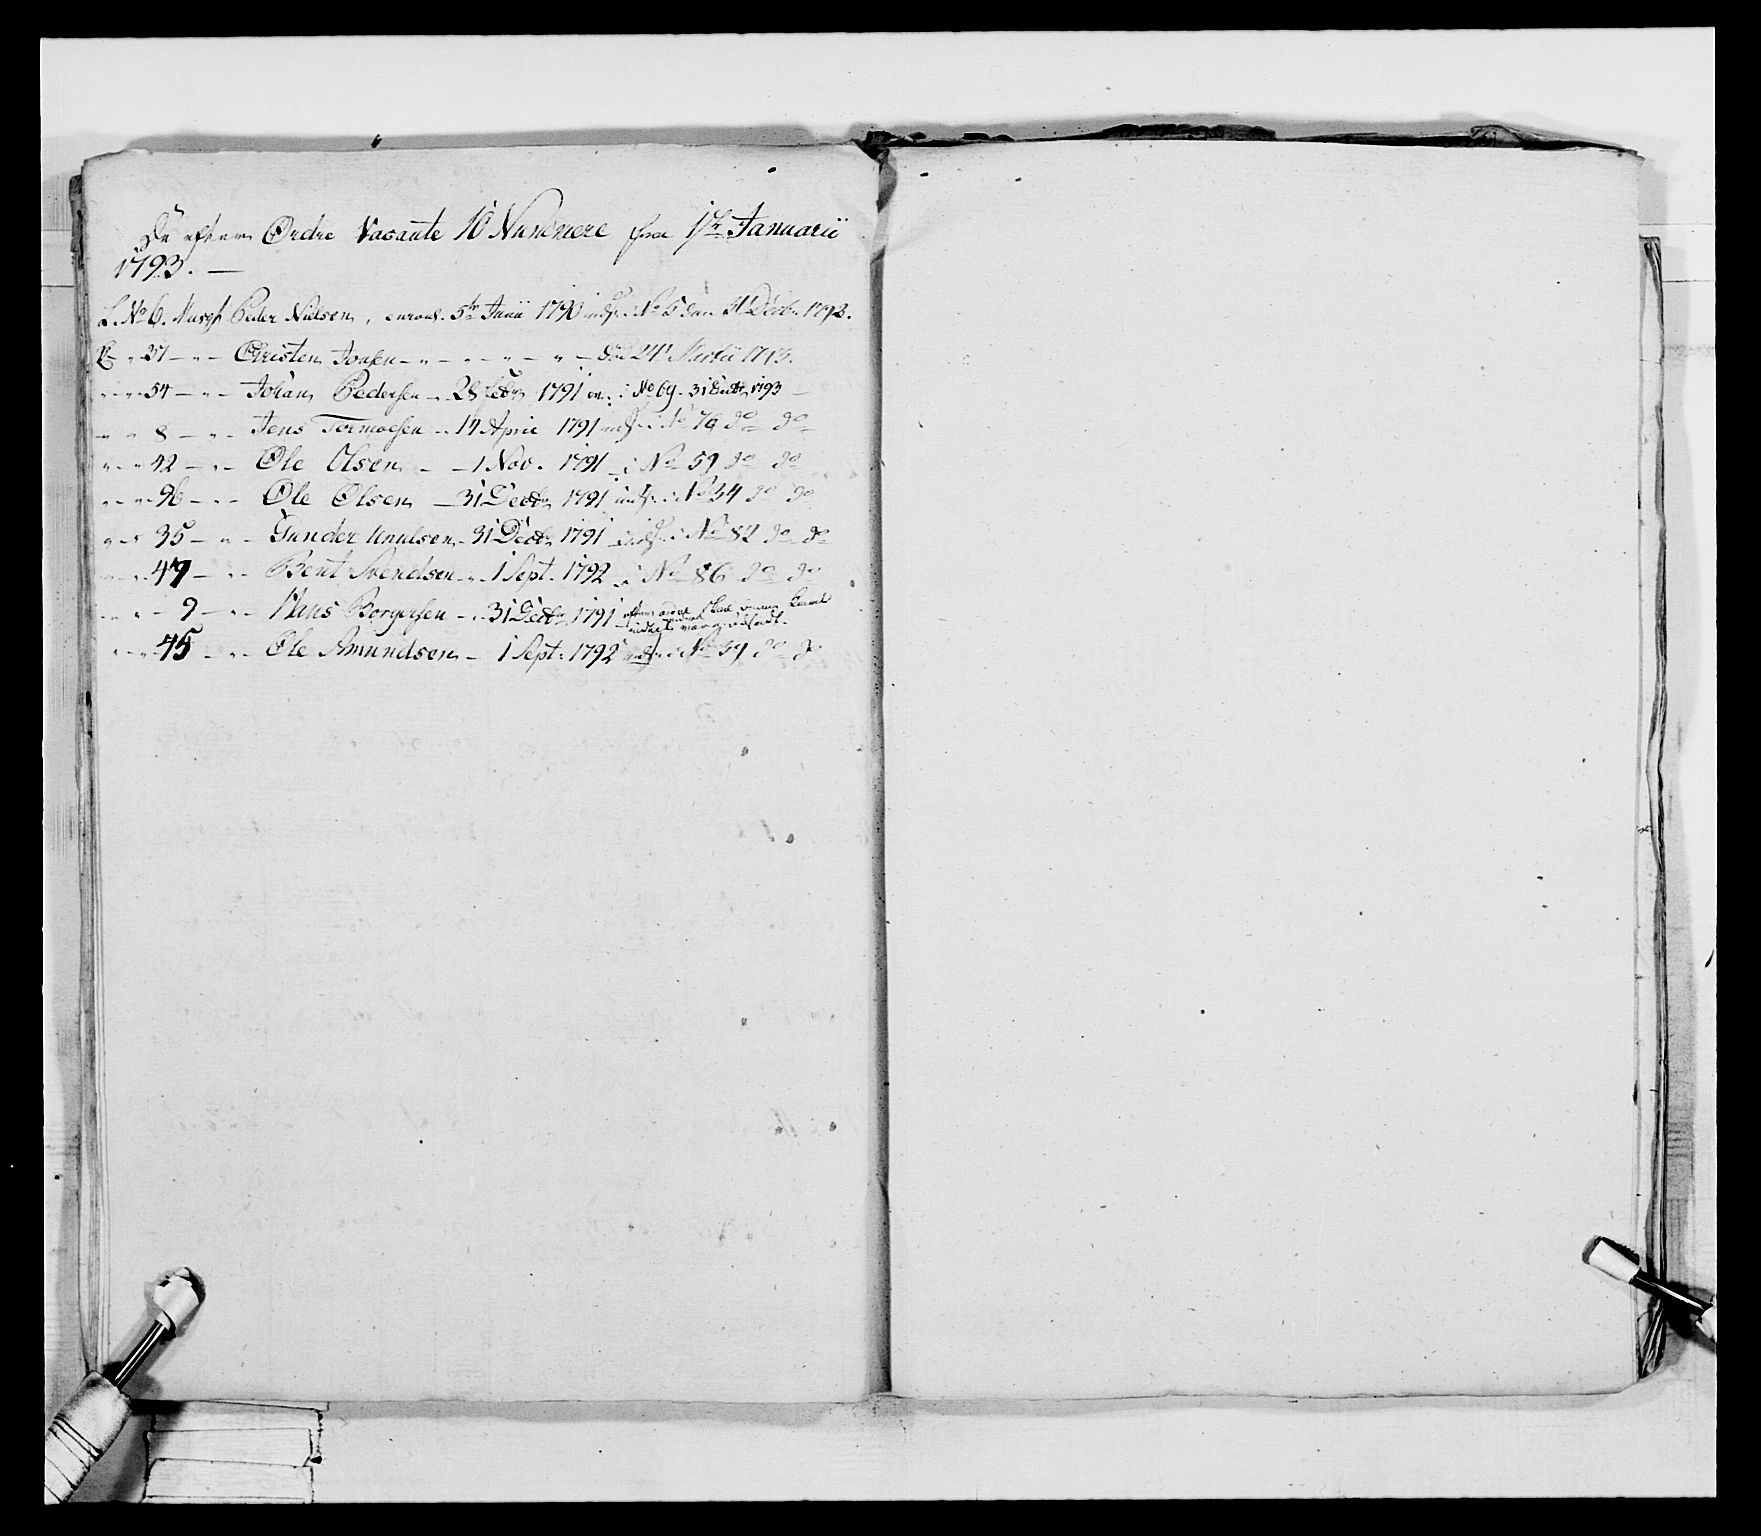 De efter Ordre Vacante 10 Nummere fra 1te Januarii
1793. —
L. No 6. Musq. Peder Nielsen, enroul. 5te Junii 1790 indf. i No 5 den 31 Decb. 1793.
" " 37 — " — Christen Jonsen — " — " — " — " — död 24 Martii 1793.
" " 54 — " — Johan Pedersen — 28 Febr. 1791 i No 69. 31 Decbr 1793
" " 8 — " — Jens Tormoesen — 14 April 1791 indf. i No 76 do do
" " 42 — " — Ole Olsen — 1 Nov. 1791 i No 59 do do
" " 96 — " — Ole Olsen — 31 Decbr 1791 indf. i No 34 do do
" " 35 — " — Gunder Knudsen — 31 Decbr 1791 indf. i No 82 do do
" " 47 — " — Bent Svendsen — 1 Sept. 1792 i No 86 do do
" " 9 — " — Hans Borgersen — 31 Decbr 1791 efter skal
" " 45 — " — Ole Amundsen — 1 Sept. 1792 indf. i No 39 do do